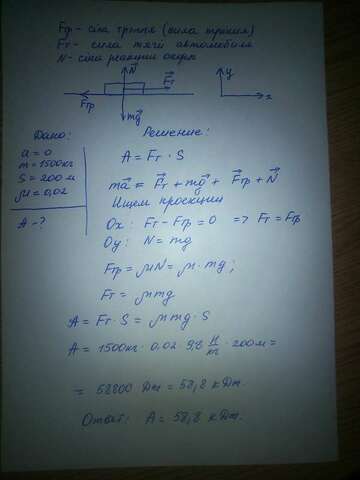 Fтр - сіла трэння (сила трения)
Fт - сила тяги автомобиля
N - сіла рэакцыі опоры
N
Fт
Fтр
mg
y
x
Дано:
a = 0
m = 1500кг
S = 200 м
μ = 0,02
A - ?
Решение:
A = Fт · S
ma = Fт + mg + Fтр + N
Ищем проекции
Ox: Fт - Fтр = 0 => Fт = Fтр
Oy: N = mg
Fтр = μN = μ · mg;
Fт = μmg
A = Fт · S = μmg · S
A = 1500кг · 0,02 · 9,8 Н/кг · 200м =
= 58800 Дж = 58,8 кДж.
Ответ: A = 58,8 кДж.